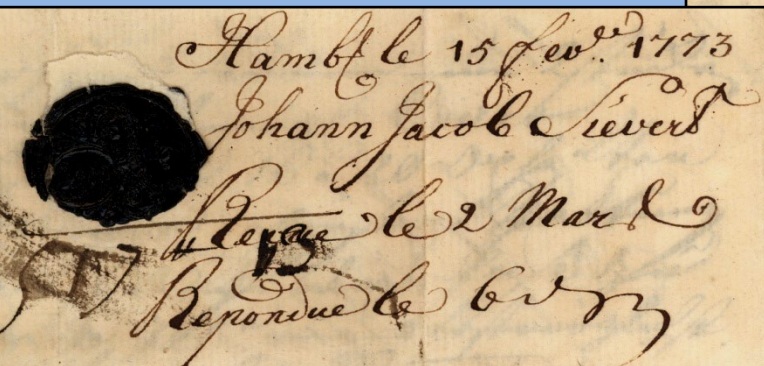 Hambg le 15 fevr. 1773
Johann Jacob Sievert
Recue le 2 Mars
Repondue le 6